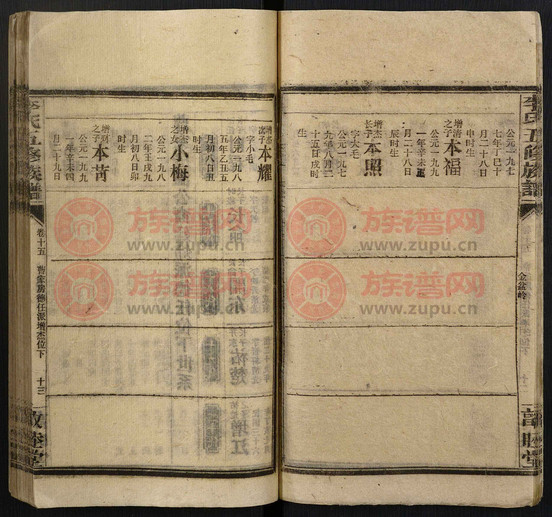 李氏五修族譜
公元一九七
七年丁巳十
月二十八日
申时生
增清
之子
本福
公元一九九
一年辛未
月二十八日
辰时生
增杰
长子
本照
字大毛
公元一九七
九年八月
十五日戌时
生
增杰
次子
本耀
字六毛
公元一九八
五年乙丑五
月初八日丑
时生
增杰
之女
小梅
公元一九八
二年壬戌九
月初八日卯
时生
之子
公元一九九
一年辛未四
月二十九日
李氏五修族譜
卷十五
德任派增杰位下
十三
敦睦堂
金盆岭
敦睦堂
族谱网
www.zupu.cn
族谱网
www.zupu.cn
族谱网
www.zupu.cn
族谱网
www.zupu.cn